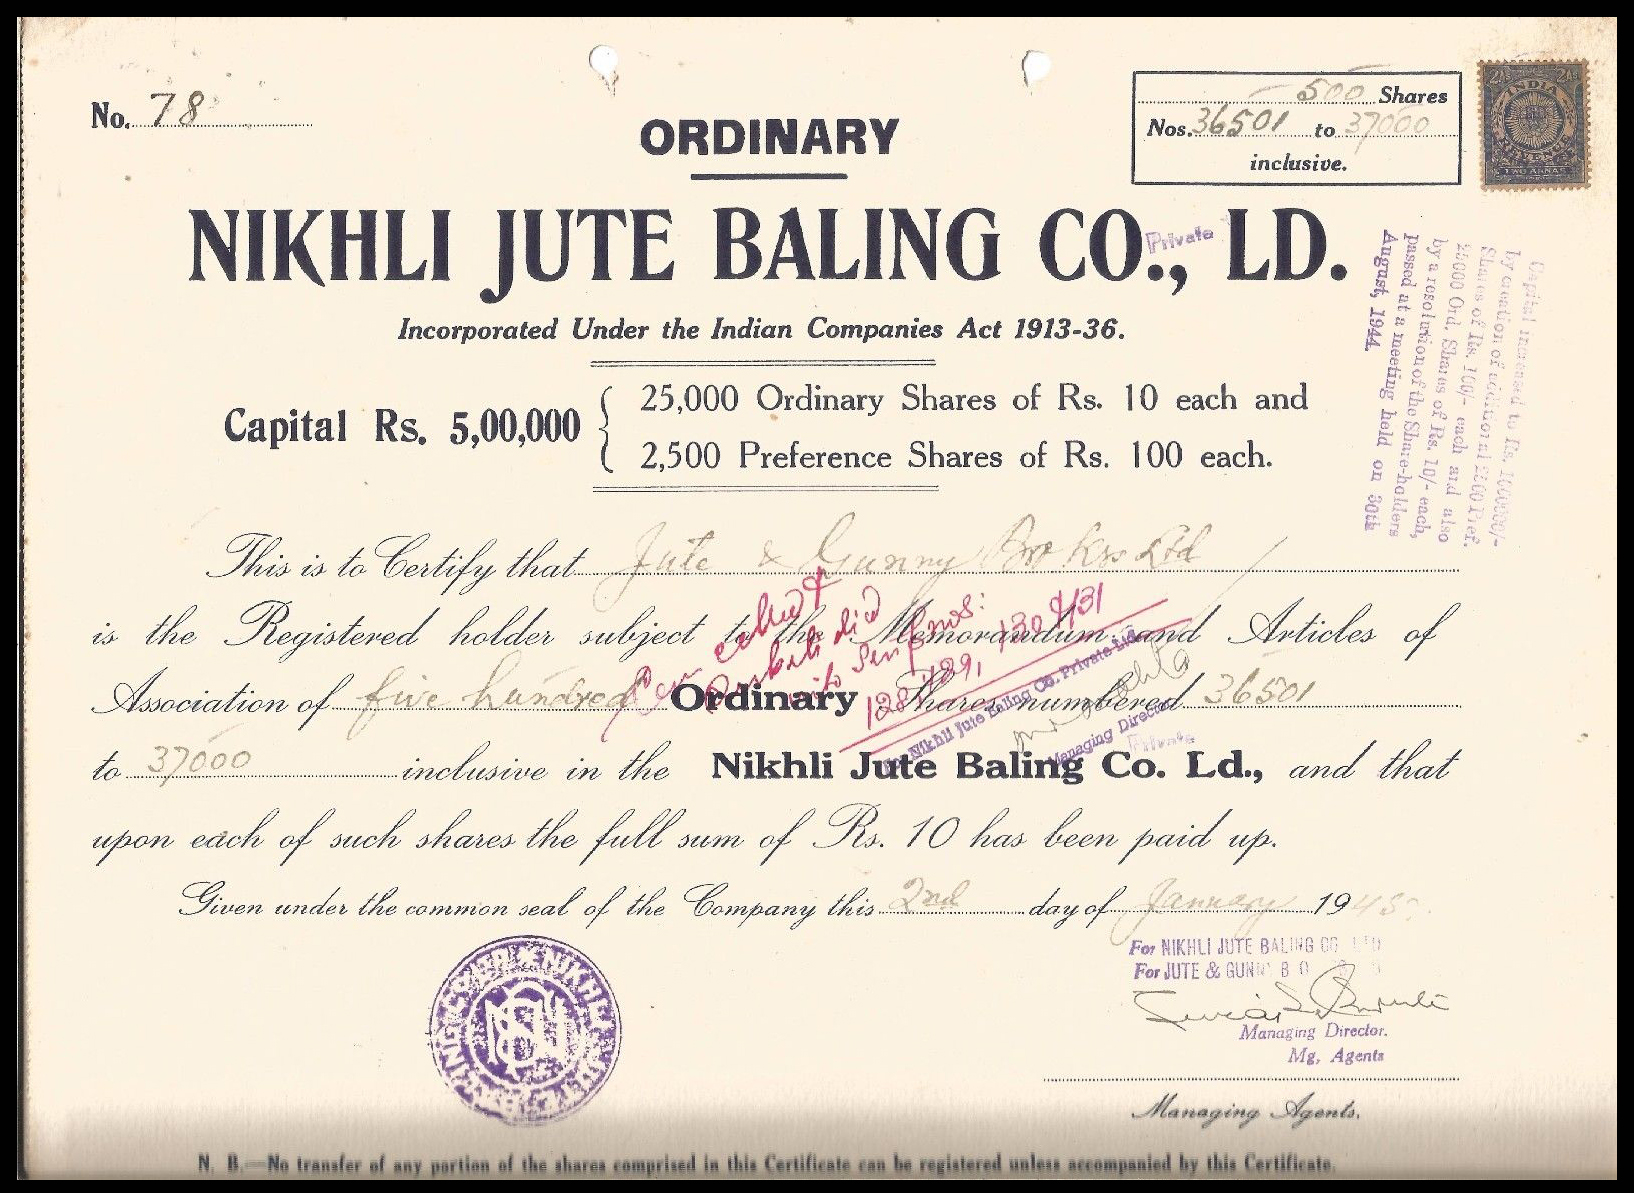 No. 78
500 Shares
Nos. 36501 to 37000
inclusive.
2As INDIA 2As
REVENUE
TWO ANNAS
ORDINARY
NIKHLI JUTE BALING CO., LD.
Private
Incorporated Under the Indian Companies Act 1913-36.
Capital Rs. 5,00,000 { 25,000 Ordinary Shares of Rs. 10 each and
2,500 Preference Shares of Rs. 100 each.
Capital increased to Rs. 1000000/-
by creation of additional 2500 Pref.
Shares of Rs. 100/- each and also
25000 Ord. Shares of Rs. 10/- each,
by a resolution of the Share-holders
passed at a meeting held on 30th
August, 1944.
This is to Certify that Jute & Gunny Brokers Ltd
is the Registered holder subject to the Memorandum and Articles of
Association of five hundred Ordinary Shares numbered 36501
to 37000 inclusive in the Nikhli Jute Baling Co. Ld., and that
Private
upon each of such shares the full sum of Rs. 10 has been paid up.
Given under the common seal of the Company this 2nd day of January 1945.
Nikhli Jute Baling Co. Private Ltd.
Managing Director.
For NIKHLI JUTE BALING CO. LTD
For JUTE & GUNNY
Managing Director.
Mg, Agents
Managing Agents.
N. B.—No transfer of any portion of the shares comprised in this Certificate can be registered unless accompanied by this Certificate.